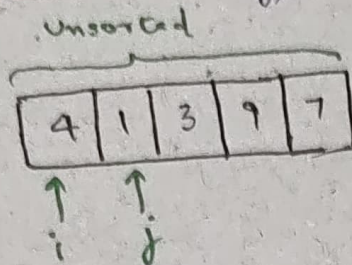 Unsorted
4 1 3 9 7
i j